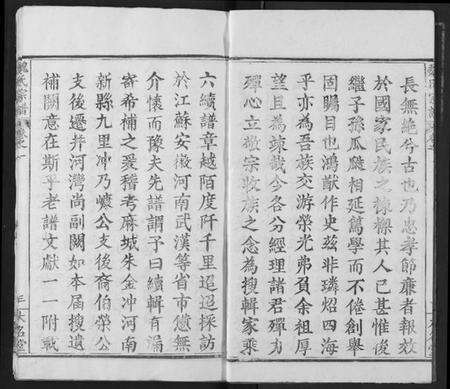 長無絶兮古也乃忠孝節廉者報效
於國家民族之樑棟其人已甚惟後
繼子孫瓜瓞相延篤學而不倦創舉
固矚目也鴻猷作史茲非璘炤四海
乎亦為吾族交游榮光弗負余祖厚
望且為竣哉今各分經理諸君殫力
殫心立敬宗收族之念為搜輯家乘
六續譜章越陌度阡千里迢迢採訪
於江蘇安徽河南武漢等省市慮無
介懷而豫夫先譜謂予曰續輯有漏
寄希補之爰稽考麻城朱金冲河南
新縣九里冲乃懷公支後裔伯榮公
支後遷岸河灣尚副闕如本屆搜遺
補闕意在斯乎老譜文獻一一附載